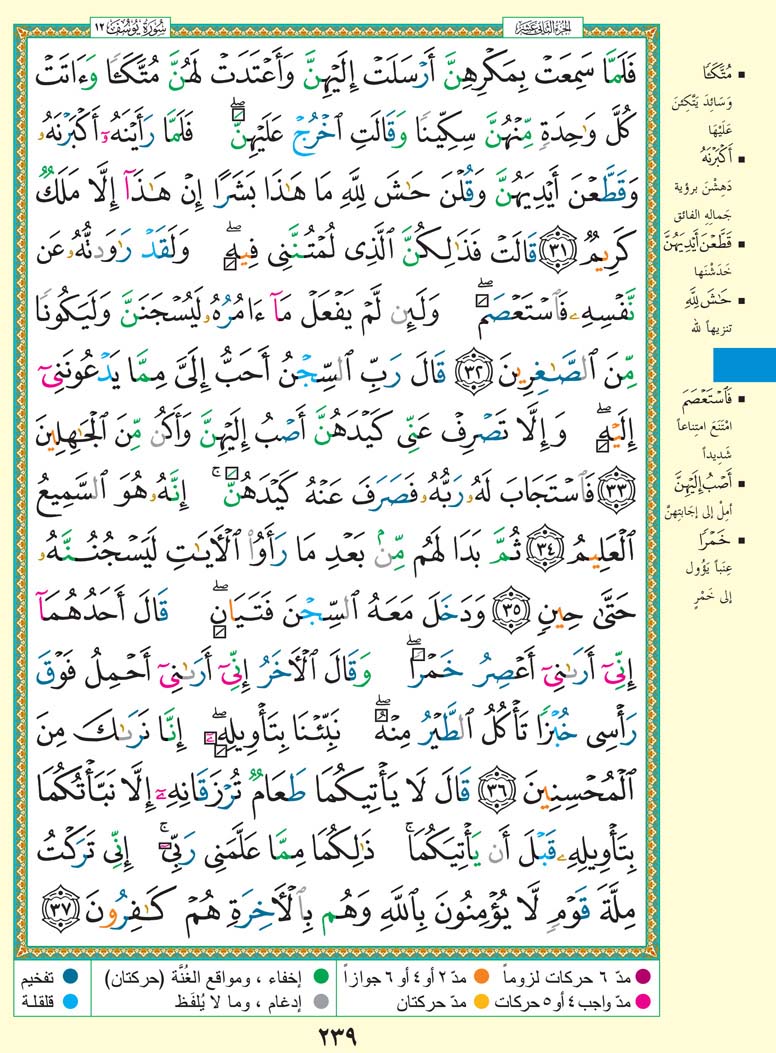 سُورَةُ يُوسُفَ ١٢
الجزء الثاني عشر
فَلَمَّا سَمِعَتْ بِمَكْرِهِنَّ أَرْسَلَتْ إِلَيْهِنَّ وَأَعْتَدَتْ لَهُنَّ مُتَّكَـًٔا وَءَاتَتْ
كُلَّ وَٰحِدَةٍ مِّنْهُنَّ سِكِّينًا وَقَالَتِ ٱخْرُجْ عَلَيْهِنَّ ۖ فَلَمَّا رَأَيْنَهُۥٓ أَكْبَرْنَهُۥ
وَقَطَّعْنَ أَيْدِيَهُنَّ وَقُلْنَ حَٰشَ لِلَّهِ مَا هَٰذَا بَشَرًا إِنْ هَٰذَآ إِلَّا مَلَكٌ
كَرِيمٌ ﴿٣١﴾ قَالَتْ فَذَٰلِكُنَّ ٱلَّذِى لُمْتُنَّنِى فِيهِ ۖ وَلَقَدْ رَٰوَدتُّهُۥ عَن
نَّفْسِهِۦ فَٱسْتَعْصَمَ ۖ وَلَئِن لَّمْ يَفْعَلْ مَآ ءَامُرُهُۥ لَيُسْجَنَنَّ وَلَيَكُونًا
مِّنَ ٱلصَّٰغِرِينَ ﴿٣٢﴾ قَالَ رَبِّ ٱلسِّجْنُ أَحَبُّ إِلَىَّ مِمَّا يَدْعُونَنِىٓ
إِلَيْهِ ۖ وَإِلَّا تَصْرِفْ عَنِّى كَيْدَهُنَّ أَصْبُ إِلَيْهِنَّ وَأَكُن مِّنَ ٱلْجَٰهِلِينَ
﴿٣٣﴾ فَٱسْتَجَابَ لَهُۥ رَبُّهُۥ فَصَرَفَ عَنْهُ كَيْدَهُنَّ ۚ إِنَّهُۥ هُوَ ٱلسَّمِيعُ
ٱلْعَلِيمُ ﴿٣٤﴾ ثُمَّ بَدَا لَهُم مِّنۢ بَعْدِ مَا رَأَوُا۟ ٱلْـَٔايَٰتِ لَيَسْجُنُنَّهُۥ
حَتَّىٰ حِينٍ ﴿٣٥﴾ وَدَخَلَ مَعَهُ ٱلسِّجْنَ فَتَيَانِ ۖ قَالَ أَحَدُهُمَآ
إِنِّىٓ أَرَىٰنِىٓ أَعْصِرُ خَمْرًا ۖ وَقَالَ ٱلْـَٔاخَرُ إِنِّىٓ أَرَىٰنِىٓ أَحْمِلُ فَوْقَ
رَأْسِى خُبْزًا تَأْكُلُ ٱلطَّيْرُ مِنْهُ ۖ نَبِّئْنَا بِتَأْوِيلِهِۦٓ ۖ إِنَّا نَرَىٰكَ مِنَ
ٱلْمُحْسِنِينَ ﴿٣٦﴾ قَالَ لَا يَأْتِيكُمَا طَعَامٌ تُرْزَقَانِهِۦٓ إِلَّا نَبَّأْتُكُمَا
بِتَأْوِيلِهِۦ قَبْلَ أَن يَأْتِيَكُمَا ۚ ذَٰلِكُمَا مِمَّا عَلَّمَنِى رَبِّىٓ ۚ إِنِّى تَرَكْتُ
مِلَّةَ قَوْمٍ لَّا يُؤْمِنُونَ بِٱللَّهِ وَهُم بِٱلْـَٔاخِرَةِ هُمْ كَٰفِرُونَ ﴿٣٧﴾
▪ مُتَّكَـًٔا
وَسَائِدَ يَتَّكِئْنَ
عَلَيْهَا
▪ أَكْبَرْنَهُ
دَهِشْنَ برؤية
جَمالِهِ الفائق
▪ قَطَّعْنَ أَيْدِيَهُنَّ
خَدَشْنَها
▪ حَٰشَ لِلَّهِ
تنزيهاً لله
▪ فَٱسْتَعْصَمَ
امْتَنَعَ امتِناعاً
شَدِيداً
▪ أَصْبُ إِلَيْهِنَّ
أمِلْ إلى إجَابَتِهنَّ
▪ خَمْرًا
عِنَباً يَؤُول
إلى خَمْرٍ
مدّ ٦ حركات لزوماً
مدّ ٢ أو ٤ أو ٦ جوازاً
إخفاء ، ومواقع الغُنَّة (حركتان)
تفخيم
مدّ واجب ٤ أو ٥ حركات
مدّ حركتان
إدغام ، وما لا يُلفَظ
قلقلة
٢٣٩